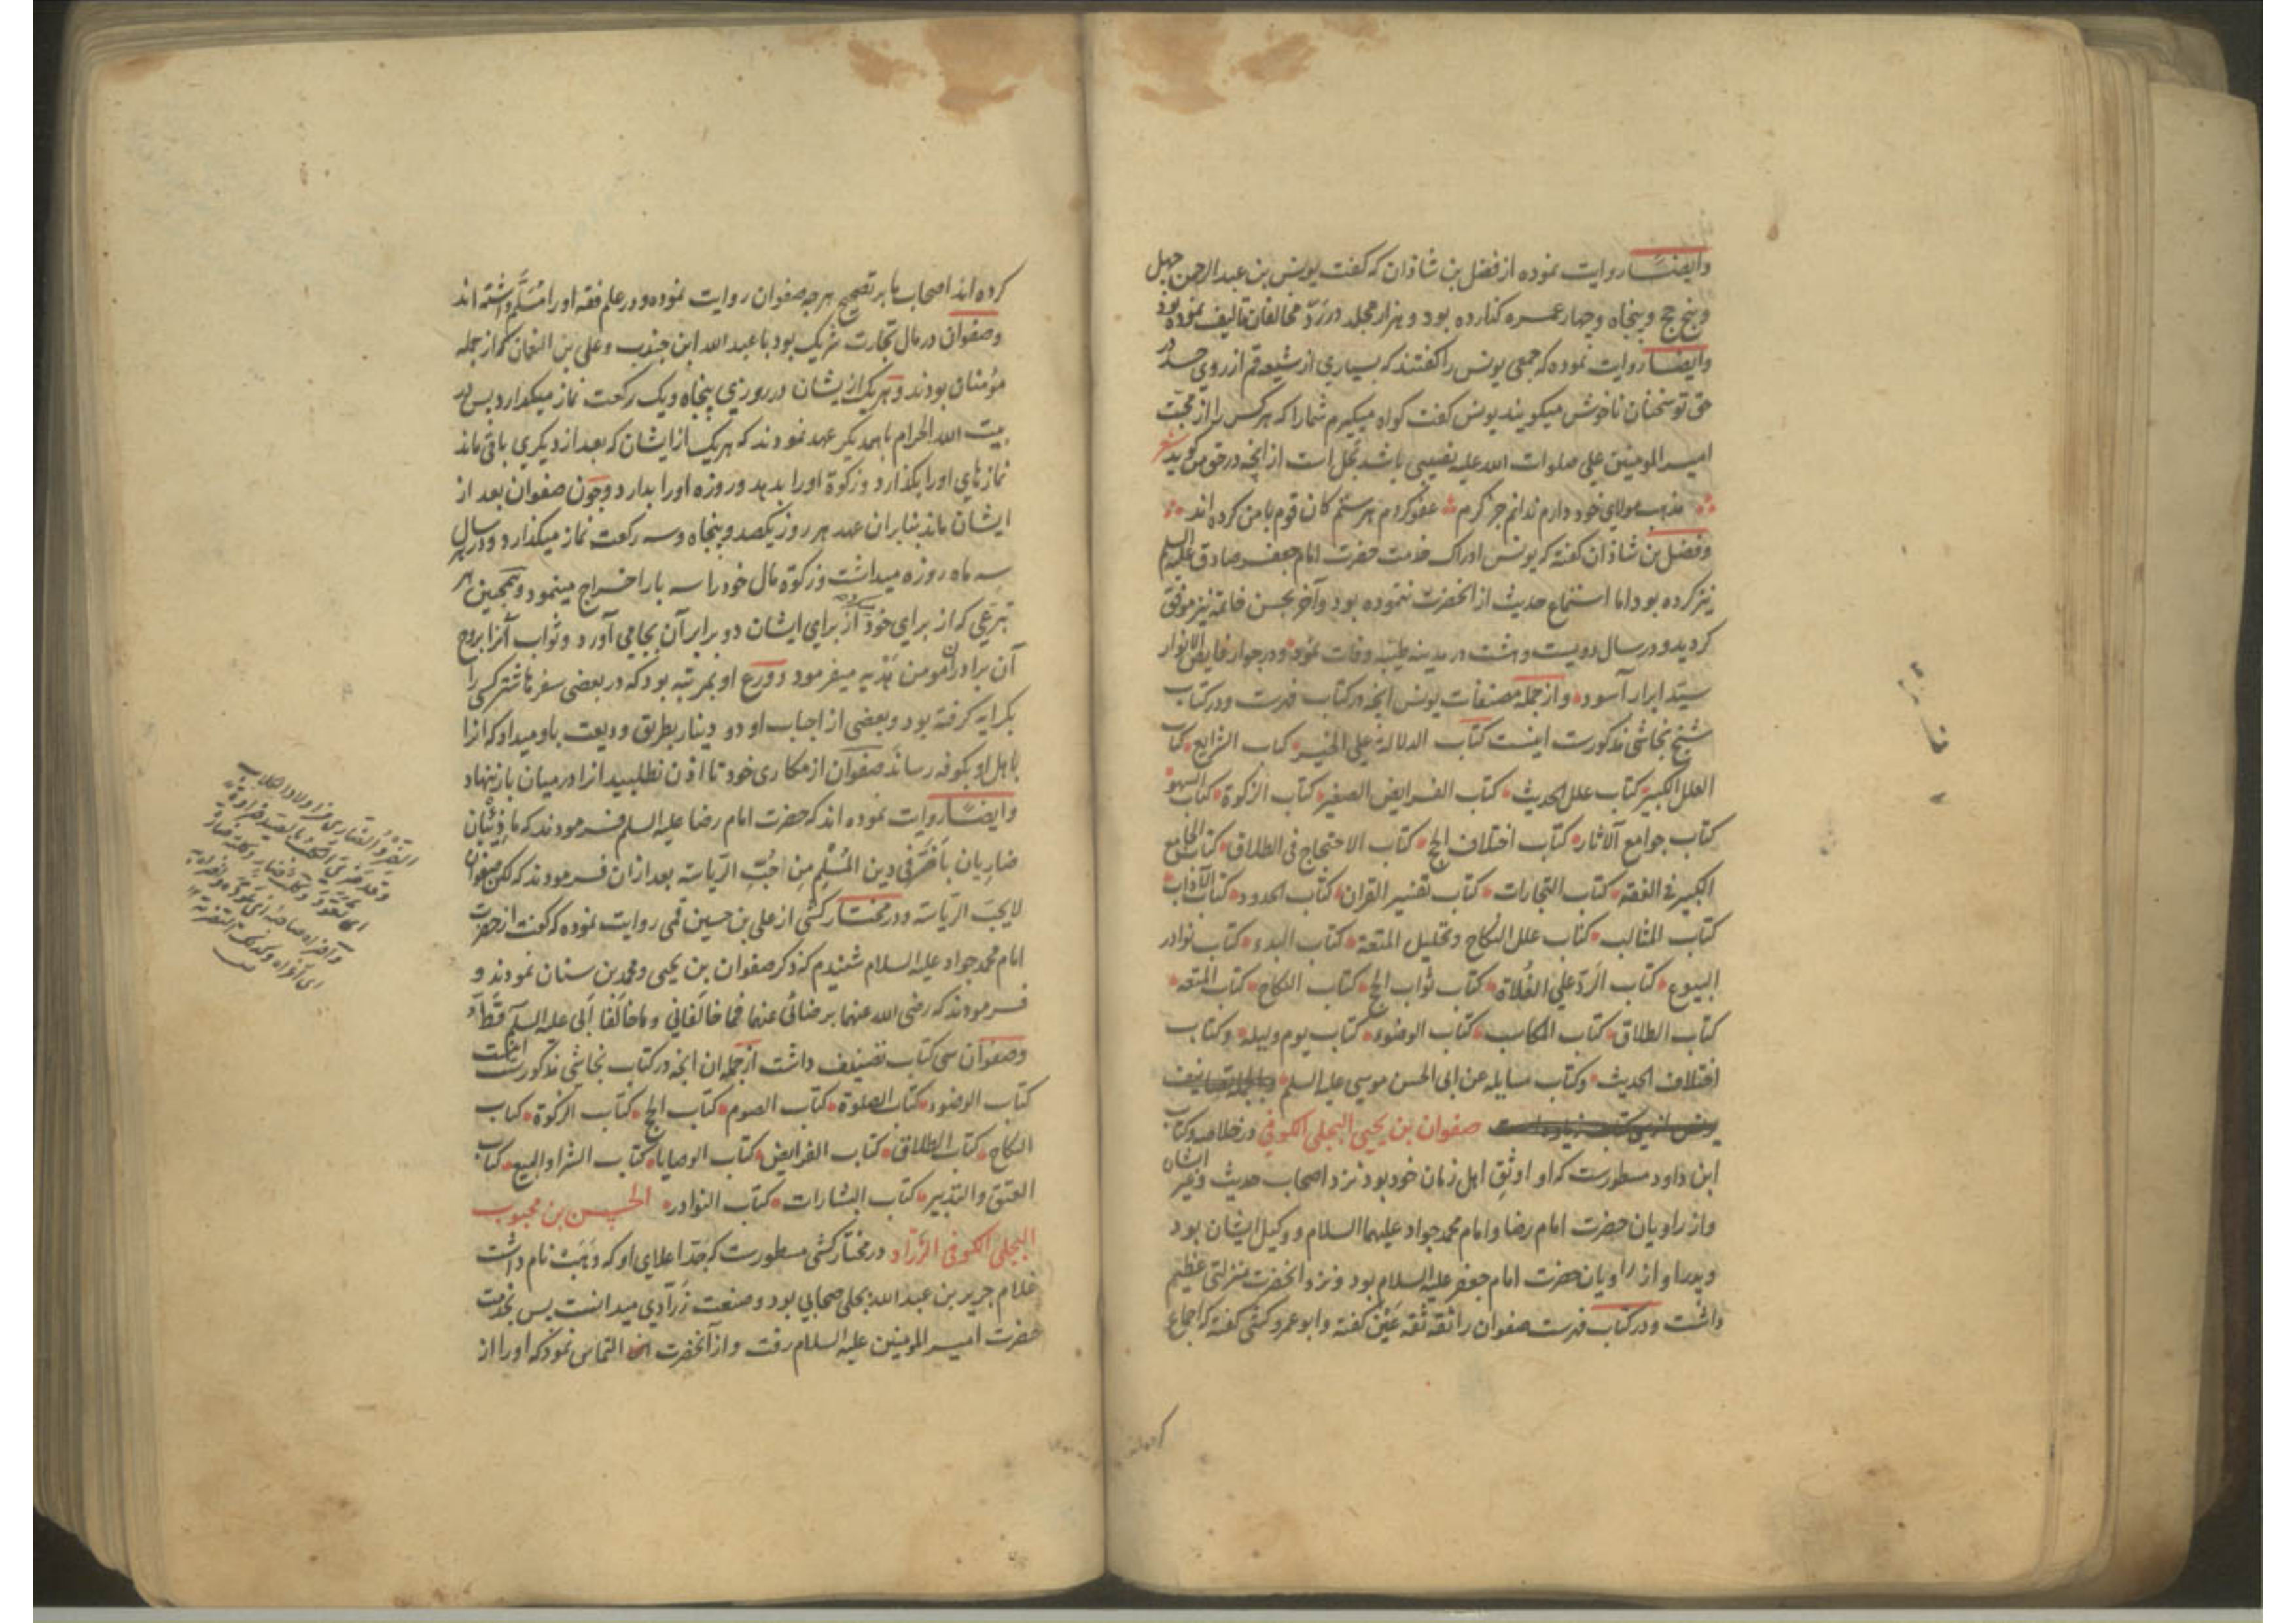 وایضا روایت نموده از فضل بن شاذان که کفت یونس بن عبد الرحمن چهل
و پنج حج و پنجاه و چهار عمره کذارده بود و هزار مجلد در ردّ مخالفان تالیف نموده بود
وایضا روایت نموده که جمعی یونس را کفتند که بسیاری از شیعه قم از روی حسد در
حق تو سخنان ناخوش میکویند یونس کفت کواه میکیرم شما را که هر کس را از محبت
امیر المومنین علی صلوات الله علیه نصیبی باشد بحل است از انچه در حق من کوید شعر
مذهب مولای خود دارم ندانم جز کرم عفو کردم هر ستم کان قوم با من کرده اند
و فضل بن شاذان کفته که یونس ادراک خدمت حضرت امام جعفر صادق علیه السلم
نیز کرده بود اما استماع حدیث از انحضرت ننموده بود و آخر بحسن خاتمه نیز موفق
کردید و در سال دویست و هشت در مدینه طیبه وفات نمود و در جوار فایض الانوار
سیّد ابرار آسود و از جمله مصنفات یونس انچه در کتاب فهرست و در کتاب
شیخ نجاشی مذکورست اینست کتاب الدلالة علی الخیر کتاب الشرایع کتاب
العلل الکبیر کتاب علل الحدیث کتاب الفرایض الصغیر کتاب الزکوة کتاب السهو
کتاب جوامع الآثار کتاب اختلاف الحج کتاب الاحتجاج فی الطلاق کتاب الجامع
الکبیر فی الفقه کتاب التجارات کتاب تفسیر القران کتاب الحدود کتاب الآداب
کتاب المثالب کتاب علل النکاح و تحلیل المتعة کتاب البدء کتاب نوادر
البیوع کتاب الرّد علی الغُلاة کتاب ثواب الحج کتاب النکاح کتاب المتعه
کتاب الطلاق کتاب المکاسب کتاب الوضوء کتاب یوم ولیله و کتاب
اختلاف الحدیث و کتاب مسایله عن ابی الحسن موسی علیه السلم
صفوان بن یحیی البجلی الکوفی در خلاصه و کتاب
ابن داود مسطورست که او اوثق اهل زمان خود بود نزد اصحاب حدیث و غیر ایشان
و از راویان حضرت امام رضا و امام محمد جواد علیهما السلام و وکیل ایشان بود
و پدر او از راویان حضرت امام جعفر علیه السلام بود و نزد انحضرت منزلتی عظیم
داشت و در کتاب فهرست صفوان را ثقه ثقه عَیْن کفته و ابو عمرو کشی کفته که اجماع
کرده اند اصحاب ما بر تصحیح هر چه صفوان روایت نموده و در علم فقه او را مُسَلَّم داشته اند
و صفوان در مال تجارت شریک بود با عبد الله ابن جندب و علی بن النعمان که از جمله
مؤمنان بودند و هر یک از یشان در روزی پنجاه و یک رکعت نماز میکذارد پس در
بیت الله الحرام با همدیکر عهد نمودند که هر یک از ایشان که بعد از دیکری باقی ماند
نمازهای او را بکذارد و زکوة او را بدهد و روزه او را بدارد و چون صفوان بعد از
ایشان ماند بنابر ان عهد هر روز یکصد و پنجاه و سه رکعت نماز میکذارد و در هر سال
سه ماه روزه میداشت و زکوة مال خود را سه بار اخراج مینمود و همچنین هر
تبرعی که از برای خود از برای ایشان دو برابر آن بجا می آورد و ثواب آنرا بروح
آن برادران مومن هدیه میفرمود و ورع او بمرتبه بود که در بعضی سفرها شتر کسی را
بکرایه کرفته بود و بعضی از احباب او دو دینار بطریق ودیعت باو میداد که انرا
باهل او بکوفه رساند صفوان از مکاری خود تا اذن نطلبید انرا در میان بار ننهاد
وایضا روایت نموده اند که حضرت امام رضا علیه السلم فرمودند که ما ذئبان
ضاریان باَضَرَّ فی دین المُسْلِم مِن حُبّ الریّاسه بعد ازان فرمودند که لکن صفوان
لایحبّ الریّاسة و در مختار کشی از علی بن حسین قمی روایت نموده که کفت از حضرت
امام محمد جواد علیه السلام شنیدم که ذکر صفوان بن یحیی و محمد بن سنان نمودند و
فرمودند که رضی الله عنهما برضائی عنهما فما خالفانی و ما خالفا ابی علیه السلم قطّ
و صفوان سی کتاب تصنیف داشت از جمله ان انچه در کتاب نجاشی مذکورست اینست
کتاب الوضوء کتاب الصلوة کتاب الصوم کتاب الحج کتاب الزکوة کتاب
النکاح کتاب الطلاق کتاب الفرایض کتاب الوصایا کتاب الشرا و البیع کتاب
العتق و التدبیر کتاب البشارات کتاب النوادر الحسن بن محبوب
البجلی الکوفی الزرّاد در مختار کشی مسطورست که جدّ اعلای او که وَهَب نام داشت
غلام جریر بن عبد الله بجلی صحابی بود و صنعت زرّادی میدانست پس بخدمت
حضرت امیر المومنین علیه السلام رفت و از آنحضرت التماس نمود که او را از